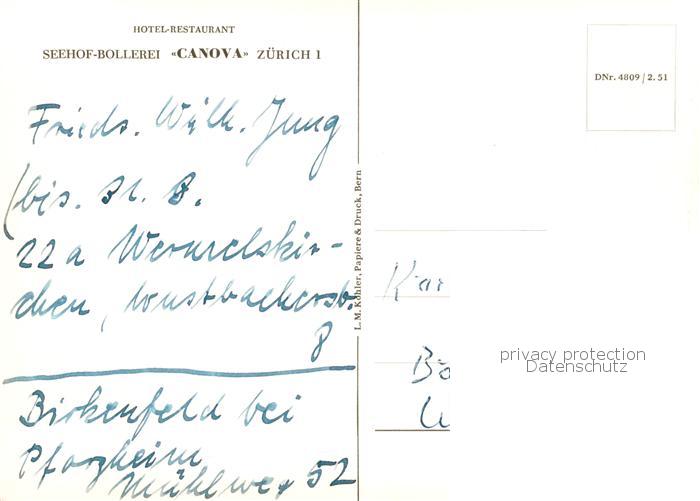 HOTEL-RESTAURANT
SEEHOF-BOLLEREI «CANOVA» ZÜRICH 1
DNr. 4809 / 2. 51
Friedr. Wilh. Jung
(bis. 31. 8.
22a Wermelskir-
chen,
8
Birkenfeld bei
Pforzheim
Mühlweg 52
L. M. Kohler, Papiere & Druck, Bern
Kar
Bö
privacy protection
Datenschutz